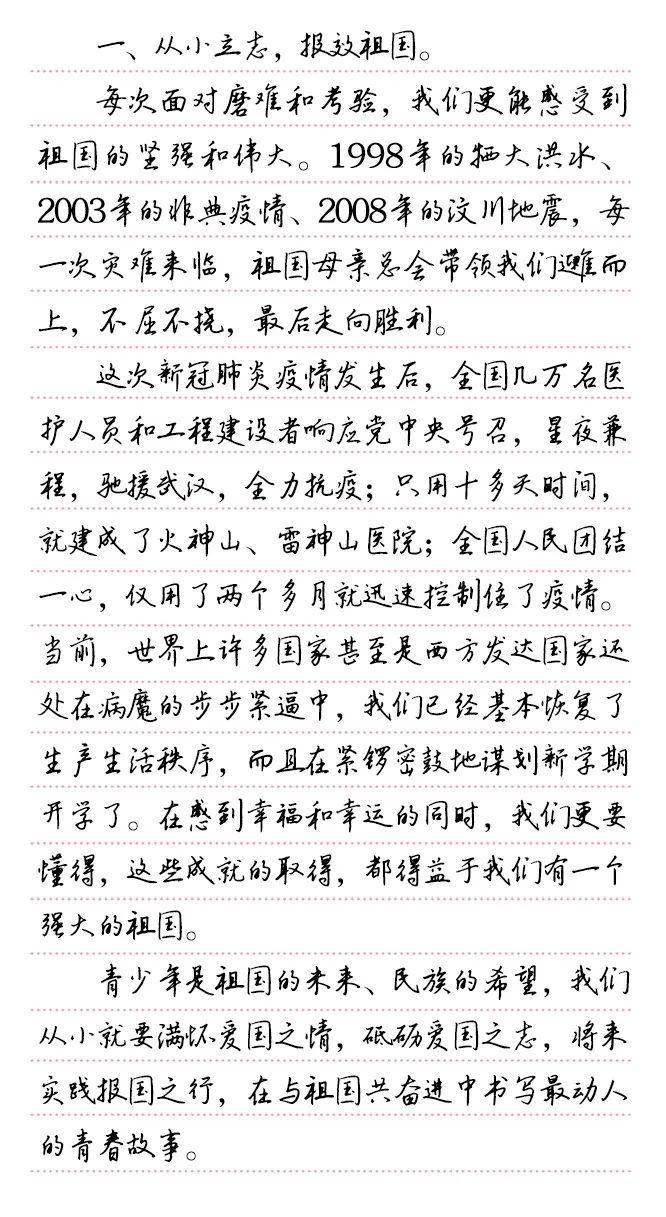 一、从小立志，报效祖国。
每次面对磨难和考验，我们更能感受到
祖国的坚强和伟大。1998年的牺大洪水、
2003年的非典疫情、2008年的汶川地震，每
一次灾难来临，祖国母亲总会带领我们难而
上，不屈不挠，最后走向胜利。
这次新冠肺炎疫情发生后，全国几万名医
护人员和工程建设者响应党中央号召，星夜兼
程，驰援武汉，全力抗疫；只用十多天时间，
就建成了火神山、雷神山医院；全国人民团结
一心，仅用了两个多月就迅速控制住了疫情。
当前，世界上许多国家甚至是西方发达国家还
处在病魔的步步紧逼中，我们已经基本恢复了
生产生活秩序，而且在紧锣密鼓地谋划新学期
开学了。在感到幸福和幸运的同时，我们更要
懂得，这些成就的取得，都得益于我们有一个
强大的祖国。
青少年是祖国的未来、民族的希望，我们
从小就要满怀爱国之情，砥砺爱国之志，将来
实践报国之行，在与祖国共奋进中书写最动人
的青春故事。